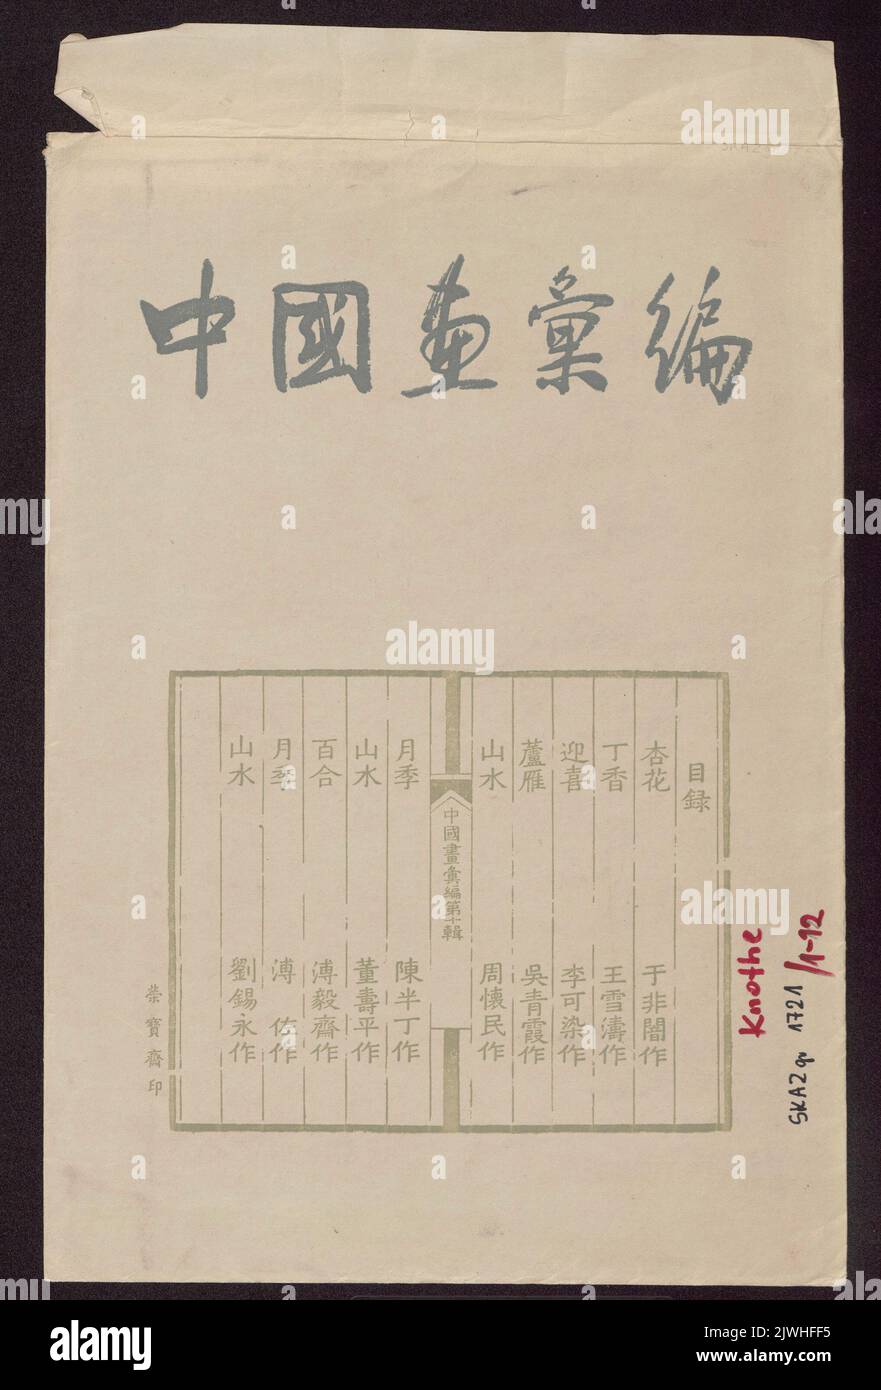 SKAZ
中國画彙編
目録
杏花 于非闇作
丁香 王雪濤作
迎喜 李可染作
蘆雁 吳青霞作
山水 周懷民作
中國畫彙編第十輯
月季 陳半丁作
山水 董壽平作
百合 溥毅齋作
月季 溥佐作
山水 劉錫永作
榮寶齋印
Knothe
SKAZ gr 1721/1-12
alamy
alamy
Image ID: 2JWHFF5
www.alamy.com